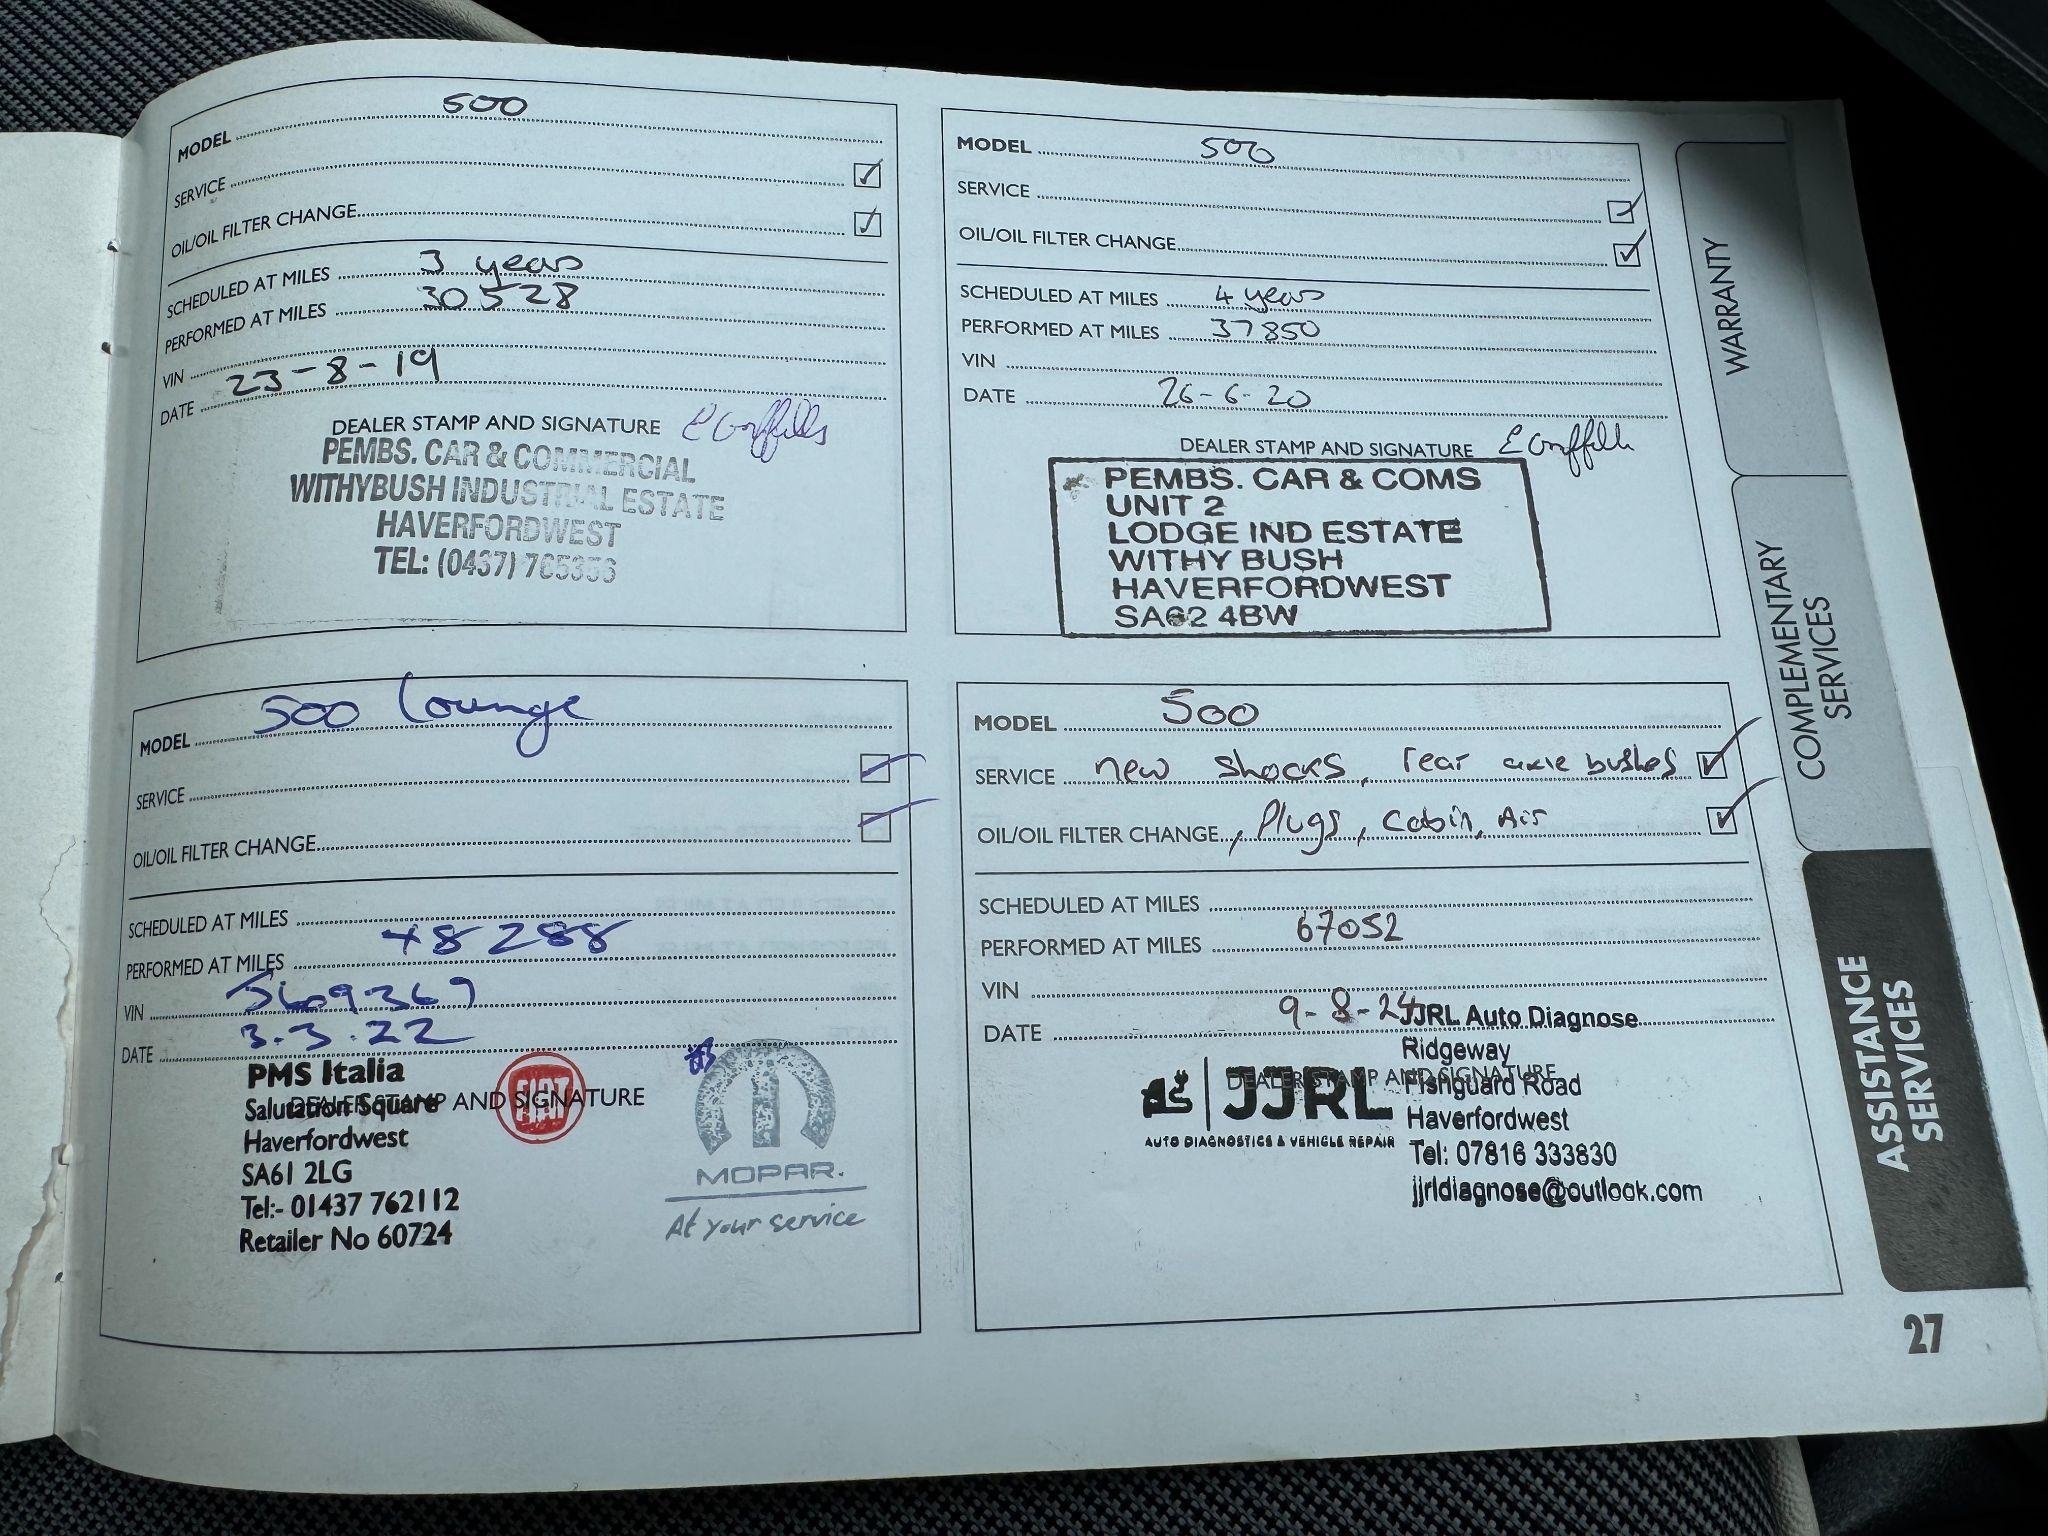 MODEL 500
SERVICE ✓
OIL/OIL FILTER CHANGE ✓
SCHEDULED AT MILES 3 years
PERFORMED AT MILES 30528
VIN
DATE 23-8-19
DEALER STAMP AND SIGNATURE
PEMBS. CAR & COMMERCIAL
WITHYBUSH INDUSTRIAL ESTATE
HAVERFORDWEST
TEL: (0437)
MODEL 500
SERVICE ✓
OIL/OIL FILTER CHANGE ✓
SCHEDULED AT MILES 4 years
PERFORMED AT MILES 37850
VIN
DATE 26-6-20
DEALER STAMP AND SIGNATURE
PEMBS. CAR & COMS
UNIT 2
LODGE IND ESTATE
WITHY BUSH
HAVERFORDWEST
SA62 4BW
MODEL 500 Lounge
SERVICE ✓
OIL/OIL FILTER CHANGE ✓
SCHEDULED AT MILES
PERFORMED AT MILES 48288
VIN J609369
DATE 3.3.22
DEALER STAMP AND SIGNATURE
PMS Italia
Salutation Square
Haverfordwest
SA61 2LG
Tel:- 01437 762112
Retailer No 60724
FIAT
MOPAR.
At your service
MODEL 500
SERVICE new shocks, rear axle bushes ✓
OIL/OIL FILTER CHANGE, Plugs, Cabin, Air ✓
SCHEDULED AT MILES
PERFORMED AT MILES 67052
VIN
DATE 9-8-24
DEALER STAMP AND SIGNATURE
JJRL
AUTO DIAGNOSTICS & VEHICLE REPAIR
JJRL Auto Diagnose
Ridgeway
Fishguard Road
Haverfordwest
Tel: 07816 333830
jjrldiagnose@outlook.com
WARRANTY
COMPLEMENTARY
SERVICES
ASSISTANCE
SERVICES
27